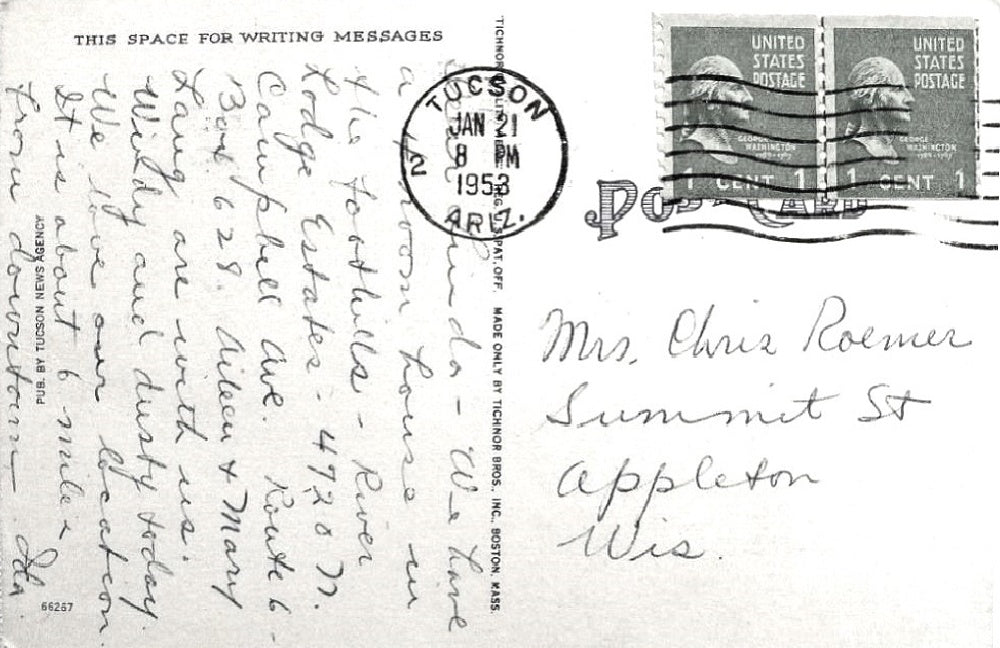 THIS SPACE FOR WRITING MESSAGES
Dear Linda - We have
a room house in
the foothills - River
Lodge Estates - 4720 N.
Campbell Ave. Route 6 -
Box 628. Aileen & Mary
Lang are with us.
Windy and dusty today.
We love our location.
It is about 6 miles
from downtown. Ida
PUB. BY TUCSON NEWS AGENCY
66267
TICHNOR QUALITY VIEWS REG. U.S. PAT. OFF. MADE ONLY BY TICHNOR BROS. INC., BOSTON, MASS.
TUCSON
JAN 21
8 PM
1953
ARIZ.
2
UNITED
STATES
POSTAGE
GEORGE
WASHINGTON
1 CENT 1
UNITED
STATES
POSTAGE
GEORGE
WASHINGTON
1 CENT 1
POST CARD
Mrs. Chris Roemer
Summit St
Appleton
Wis.